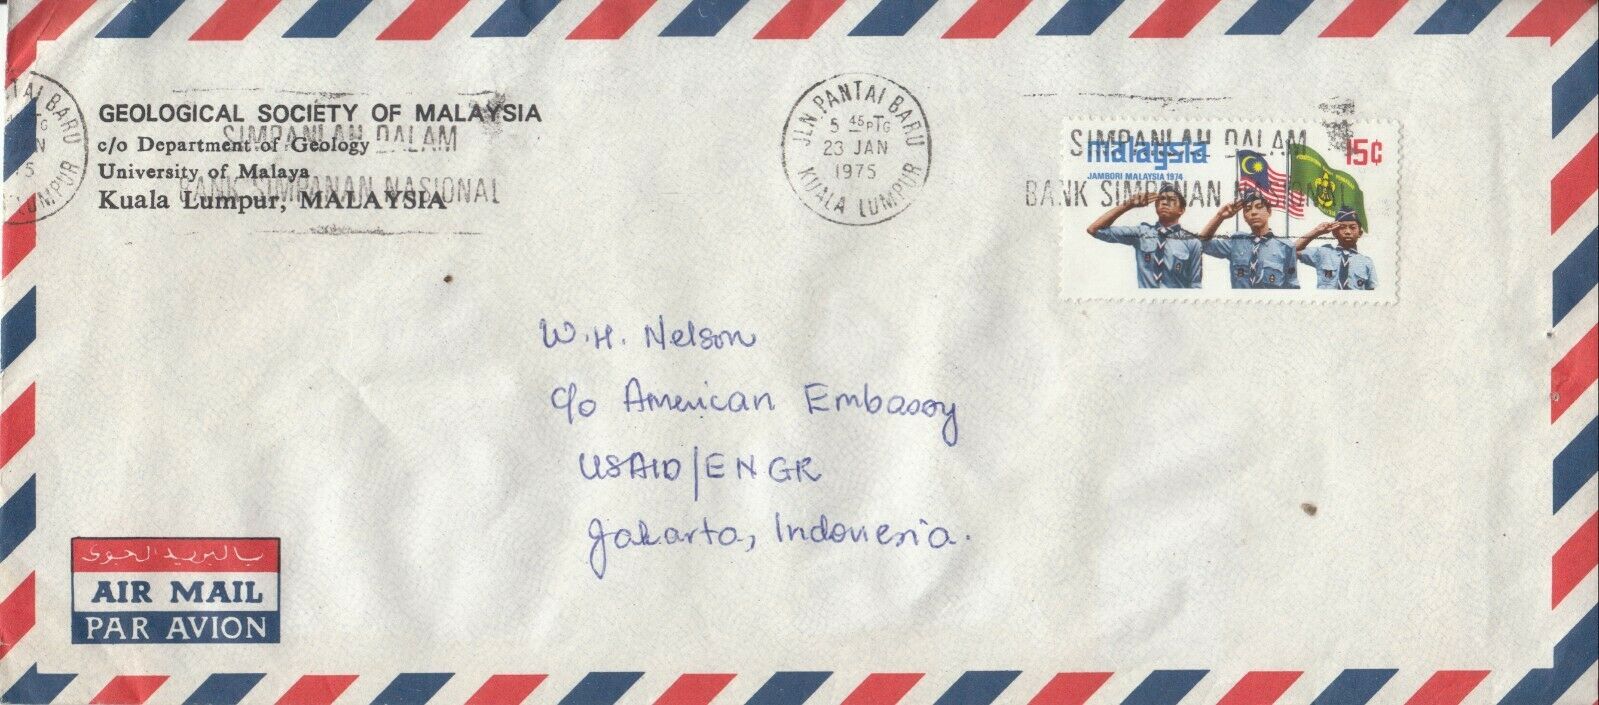 TAI BARU
TG
JAN
5
LUMPUR
GEOLOGICAL SOCIETY OF MALAYSIA
c/o Department of Geology
University of Malaya
Kuala Lumpur, MALAYSIA
SIMPANLAH DALAM
BANK SIMPANAN NASIONAL
JLN. PANTAI BARU
5 45 PTG
23 JAN
1975
KUALA LUMPUR
SIMPANLAH DALAM
BANK SIMPANAN NASIONAL
malaysia
15¢
JAMBORI MALAYSIA 1974
W.H. Nelson
c/o American Embassy
USAID/ENGR
Jakarta, Indonesia.
بالبريد الجوى
AIR MAIL
PAR AVION